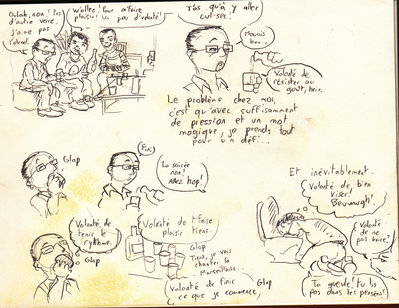 Oulah, non ! Pas
d'autre verre,
j'aime pas
l'alcool
Wallez ! Pour te faire
plaisir ! Un peu d'volonté !
T'as qu'à y aller
cul-sec.
Mouais
bon...
Volonté de
résister au
goût, hein.
Le problème chez moi,
c'est qu'avec suffisamment
de pression et un mot
magique, je prends tout
pour un défi...
Glop
Fini
La soirée
non !
Allez hop !
Volonté de
tenir le
rythme.
Glop
Volonté de t'faire
plaisir tiens.
Glop
Tiens, je vais
chanter la
Marseillaise...
Volonté de finir
ce que je commence,
Glop
Et inévitablement..
Volonté de bien
viser !
Beuwaargh !
Volonté
de ne
pas boire !
Ta gueule ! Tu lis
pas dans les pensées !